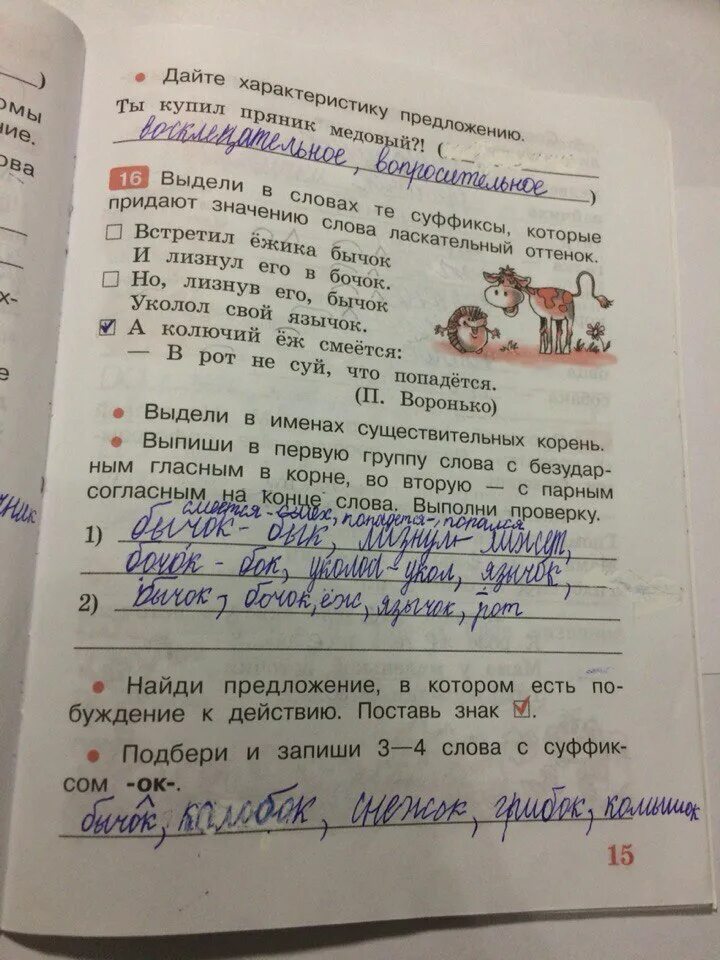 • Дайте характеристику предложению.
Ты купил пряник медовый?! (
восклецательное, вопросительное )
16 Выдели в словах те суффиксы, которые
придают значению слова ласкательный оттенок.
Встретил ёжика бычок
И лизнул его в бочок.
Но, лизнув его, бычок
Уколол свой язычок.
А колючий ёж смеётся:
— В рот не суй, что попадётся.
(П. Воронько)
• Выдели в именах существительных корень.
• Выпиши в первую группу слова с безудар-
ным гласным в корне, во вторую — с парным
согласным на конце слова. Выполни проверку.
смеётся - смех, попадётся-, попался
1) бычок - бык, лизнул - лижет,
бочок - бок, уколол - укол, язычок,
2) бычок, бочок, ёж, язычок, рот
• Найди предложение, в котором есть по-
буждение к действию. Поставь знак ☑.
• Подбери и запиши 3—4 слова с суффик-
сом -ок-.
бычок, колобок, снежок, грибок, комышок
15
)
ние.
ова
х-